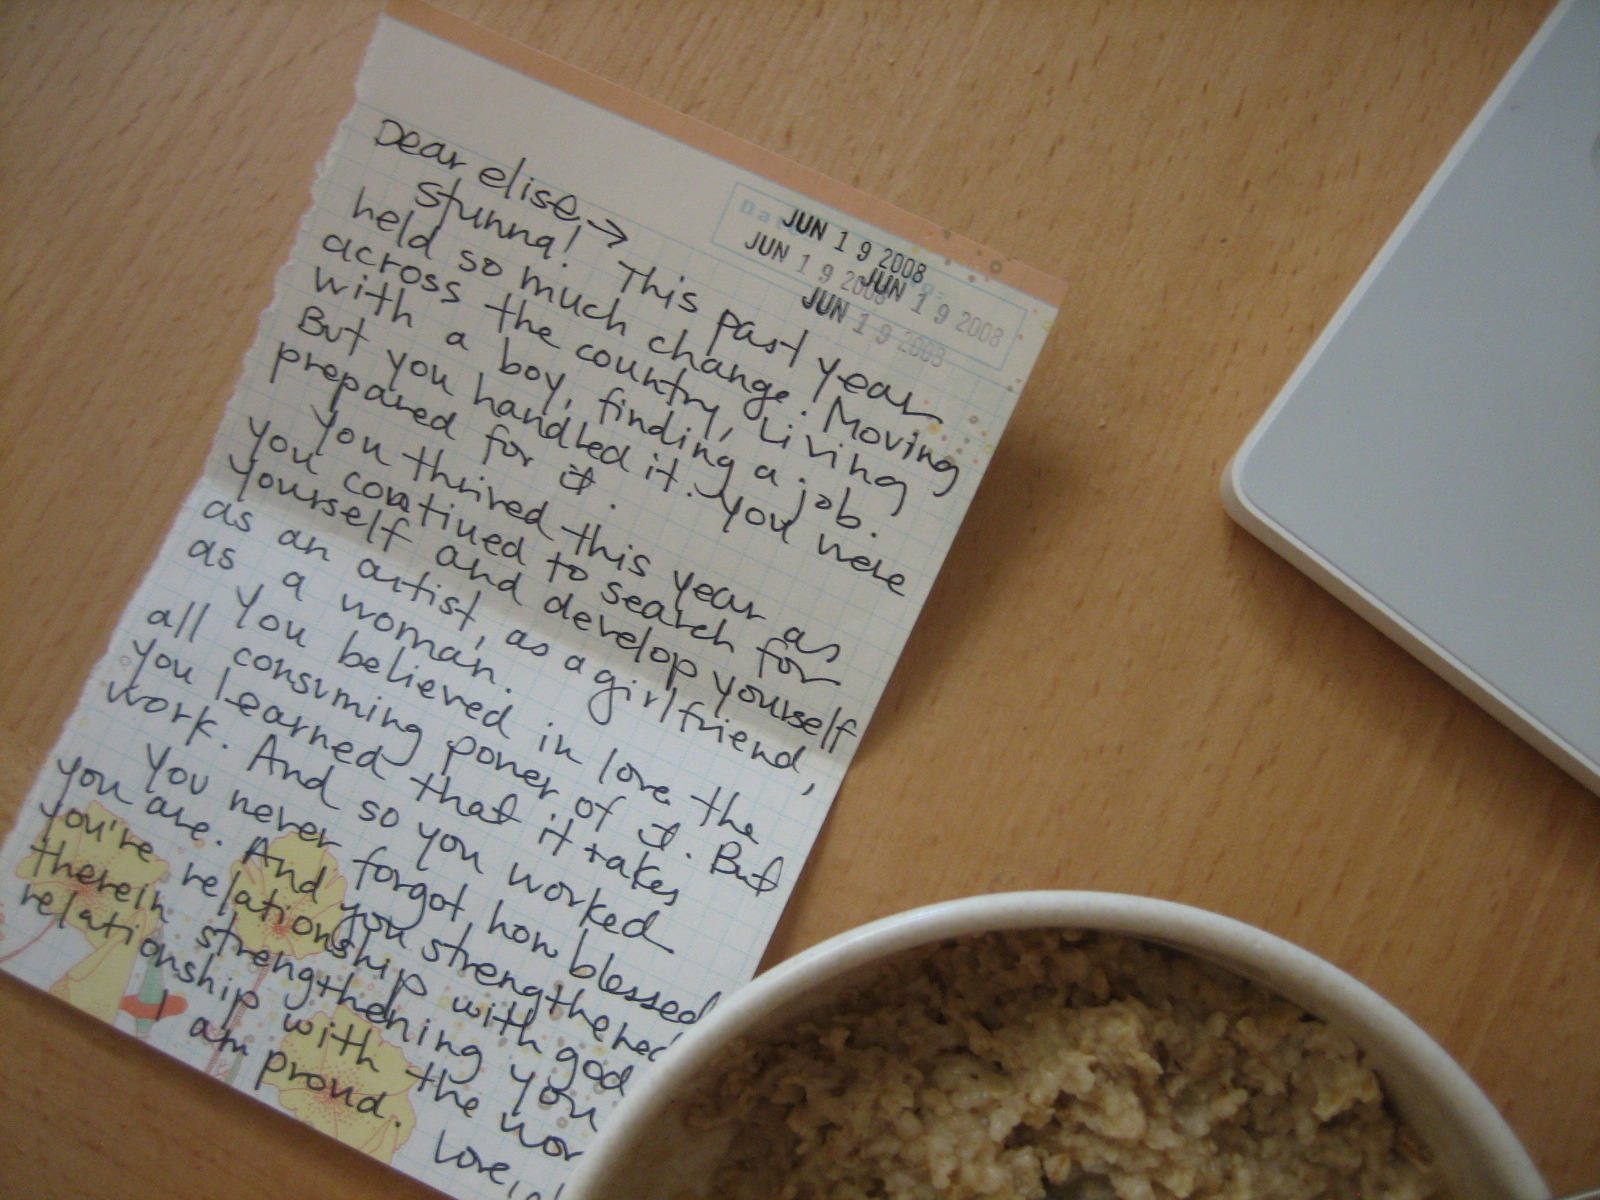 Dear elise,→
JUN 19 2008
JUN 19 2008
JUN 19 2008
JUN 19 2008
Stunna! This past year
held so much change. Moving
across the country, living
with a boy, finding a job.
But you handled it. You were
prepared for it.
You thrived this year as
you contiued to search for
yourself and develop yourself
as an artist, as a girlfriend,
as a woman.
You believed in love the
all consuming power of it. But
you learned that it takes
work. And so you worked
You never forgot how blessed
you are. And you strengthened
you're relationship with god
therein strengthening you
relationship with the
I am proud.
Love,